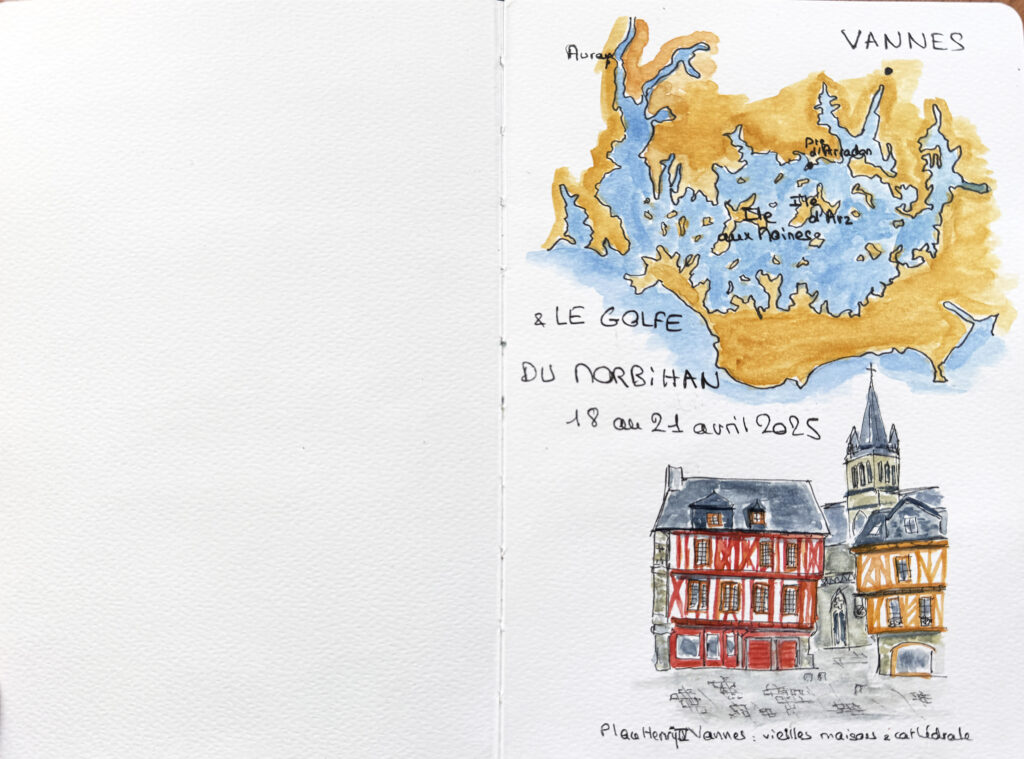 VANNES
Auray
Pte
d'Arradon
Ile
d'Arz
Ile
aux Moines
& LE GOLFE
DU MORBIHAN
18 au 21 avril 2025
Place Henry IV Vannes : vieilles maisons & cathédrale